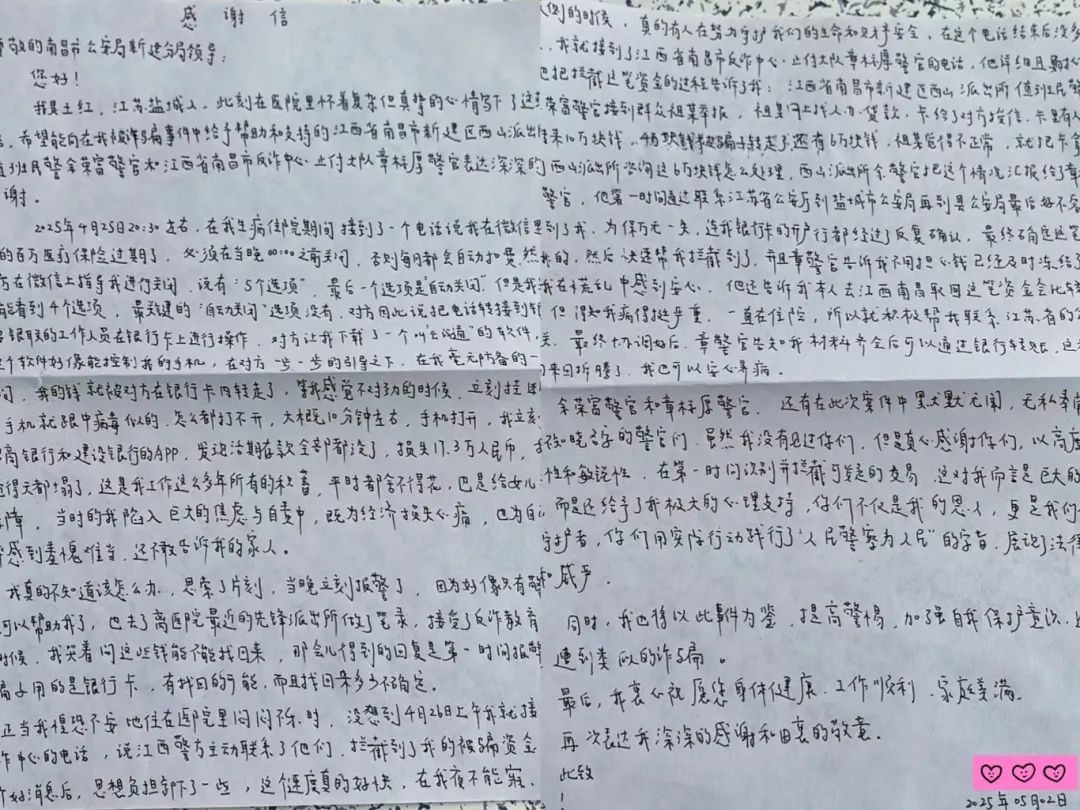 感谢信
尊敬的南昌市公安局新建分局领导：
您好！
我是王红，江苏盐城人，此刻在医院里怀着复杂但真挚的心情写下了这
，希望能向在我被诈骗事件中给予帮助和支持的江西省南昌市新建区西山派出
值班民警余荣富警官和江西省南昌市反诈中心止付大队章标厚警官表达深深的
谢。
2025年4月25日20:30左右，在我生病住院期间接到了一个电话说我在微信里
的百万医疗保险过期了，必须在当晚00:00之前关闭，否则每月都会自动扣费，然
方在微信上指导我进行关闭，说有"5个选项"，最后一个选项是"自动关闭"，但是我
能看到4个选项，最关键的"自动关闭"选项没有，对方因此说把电话转接到
银联的工作人员在银行卡上进行操作，对方让我下载了一个叫"会通"的软件，
个软件好像能控制我的手机，在对方一步一步的引导之下，在我毫无防备的一
间，我的钱就被对方在银行卡内转走了，等我感觉不对劲的时候，立刻挂
手机就跟中病毒似的，怎么都打不开，大概10分钟左右，手机打开，我立刻
商银行和建设银行的APP，发现活期存款全部都没了，损失17.3万人民币，
觉得天都塌了，这是我工作这么多年所有的积蓄，平时都舍不得花，也是给女儿
障，当时的我陷入巨大的焦虑与自责中，既为经济损失心痛，也为自
感到羞愧难当，还不敢告诉我的家人。
我真的不知道该怎么办，思索了片刻，当晚立刻报警了，因为好像只有警
可以帮助我了，也去了离医院最近的先锋派出所做了笔录，接受了反诈教育
时候，我哭着问这些钱能不能找回来，那会儿得到的回复是第一时间报警
骗子用的是银行卡，有找回的可能，而且找回来多少不确定。
正当我惶恐不安地住在医院里闷闷不乐时，没想到4月26日上午我就接
诈中心的电话，说江西警方主动联系了他们，拦截到了我的被骗资金
个好消息后，思想负担卸下了一些，这个速度真的好快，在我夜不能寐、
的时候，真的有人在努力守护我们的生命和财产安全，在这个电话结束后没多
，我就接到了江西省南昌市反诈中心止付大队章标厚警官的电话，他详细且
地把拦截这笔资金的过程告诉了我：江西省南昌市新建区西山派出所值班民警
荣富警官接到群众祖某举报，祖某网上找人办贷款，卡给了对方授信，卡里有人
来10万块钱，4万块钱被骗子转走了，还有6万块钱，祖某觉得不正常，就把卡拿
西山派出所咨询这6万块钱怎么处理，西山派出所余警官把这个情况汇报给了章
警官，他第一时间通过联系江苏省公安厅到盐城市公安局再到县公安局最后
到了我，为保万无一失，连我银行卡的开户行都经过了反复确认，最终确定这笔
我的，然后快速帮我拦截到了，并且章警官告诉我不用担心钱已经及时冻结了
我在慌乱中感到安心，他还告诉我本人去江西南昌取回这笔资金会比较
但得知我病得挺严重，一直在住院，所以就积极帮我联系江苏省的公
，最终协调好后，章警官告知我材料齐全后可以通过银行转账，这
来回折腾了，我也可以安心养病。
余荣富警官和章标厚警官，还有在此次案件中默默无闻，无私奉献
不知晓名字的警官们，虽然我没有见过你们，但是真心感谢你们，以高度
性和敏锐性，在第一时间识别并拦截可疑的交易，这对我而言是巨大的
而是还给予了我极大的心理支持，你们不仅是我的恩人，更是我们
守护者，你们用实际行动践行了"人民警察为人民"的宗旨，展现了法律
和威严。
同时，我也将以此事件为鉴，提高警惕，加强自我保护意识，
遭到类似的诈骗。
最后，我衷心祝愿您身体健康、工作顺利、家庭美满。
再次表达我深深的感谢和由衷的敬意。
此致
！
2025年05月02日